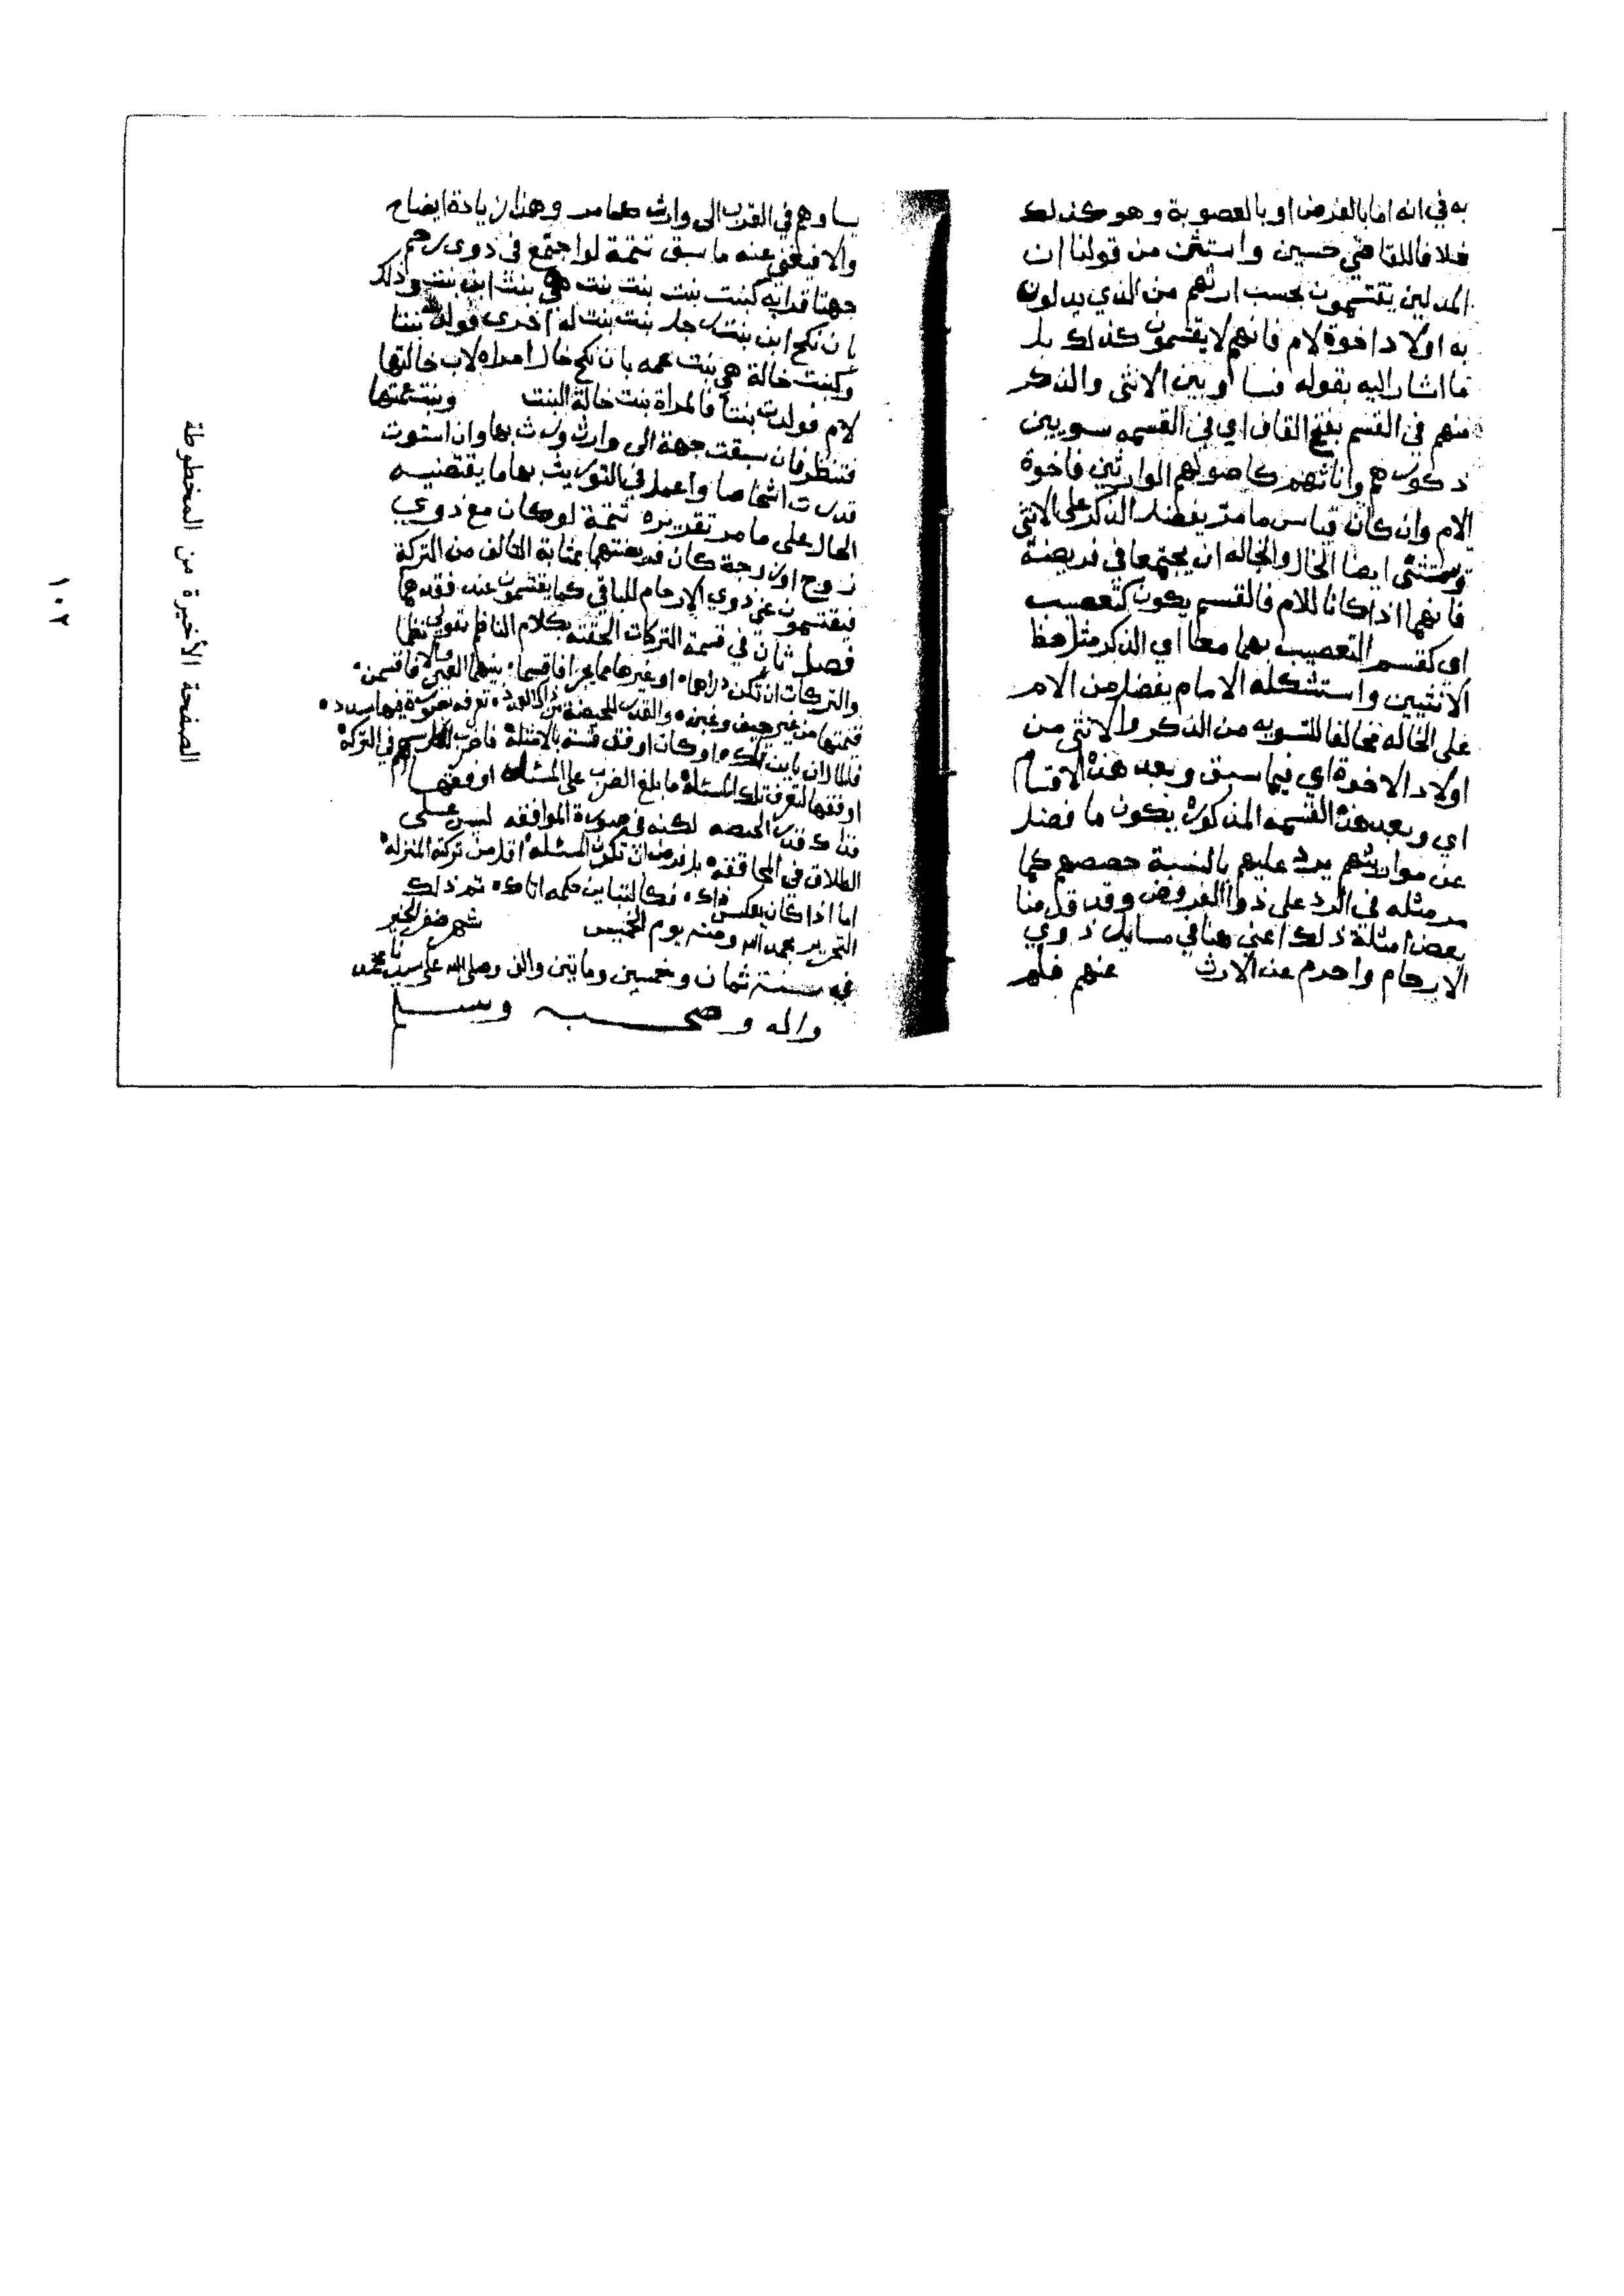 به في انه اما بالفرض او بالعصوبة وهو كذلك
خلافا للقاضي حسين واستثني من قولنا ان
المدلين يقتسمون بحسب ارثهم من الذي يدلون
به اولاد اخوة لام فانهم لا يقتسمون كذلك بل
ما اشار اليه بقوله وسا او بين الانثى والذكر
منهم في القسم بفتح القاف اي في القسمه سويين
ذكورهم واناثهم كاصولهم الوارثين فاخوة
الام وان كان قياس ما مر يفضل الذكر على الانثى
ويستثنى ايضا الخال والخاله ان يجتمعا في فريضة
فانهما اذا كانا للام فالقسم يكون كتعصيب
اي كقسم التعصيب بهما معا اي الذكر مثل حظ
الانثيين واستشكله الامام يفضل من الام
على الخاله مخالفا للتسويه من الذكر والانثى من
اولاد الاخوة اي فيما سبق وبعد هذه الاقسام
اي وبعد هذه القسمه المذكورة يكون ما فضل
عن مواريثهم يرد عليهم بالنسبة حصصهم كما
مر مثله في الرد على ذوا الفروض وقد قدمنا
بعض امثلة ذلك اعني هنا في مسايل ذوي
الارحام واحرم عن الارث عنهم فلم
يساوهم في القرب الى وارث كما مر وهذا زيادة ايضاح
والا فيغني عنه ما سبق تتمة لو اجتمع في ذوي رحم
جهتا قرابه كبنت بنت بنت هي بنت ابن بنت وذلك
بان نكح ابن بنت رجل بنت بنت له اخرى فولدت بنتا
وكبنت خالة هي بنت عمه بان نكح خال امراه لاب خالتها
لام فولدت بنتا فالمراة بنت خالة البنت وبنت عمتها
فتنظر فان سبقت جهة الى وارث ورث بها وان استوت
قدرت اشخاصا واعمل في التوريث بها ما يقتضيه
الحال على ما مر تقريره تتمة لو كان مع ذوي
زوج او زوجة كان فريضتهما بمثابة التالف من التركة
فيقتسمون عني ذوي الارحام للباقي كما يقتسمون عند فقدهما
فصل ثان في قسمة التركات الحقته بكلام الناظم بقولي نظما
والتركات ان تكن دراهما او غيرها مما يجزا فاقسما بينهما العين والا فاقسمن
قيمتها من غير حيف وغبن والقدر للحصة من ذاك العدد تعرفه بضرب
فالمال ان باين تلك او كان اوفق قسه بالامثلة فاضرب في التركه
او وفقها لتعرف تلك المسئلة ما بلغ الضرب على المسئله او وفقها
فذاك قدر الحصه لكنه في صورة الموافقه ليس على
الطلاق في بل فرض ان تكون المسئله اقل من تركة المنزله
اما اذا كان بعكس ذاك فكالتباين حكمه اتاك تم ذلك
التحرير بحمد الله ومنه يوم الخميس شهر صفر الخير
في سنة ثمان وخمسين ومايتين والف وصلى الله على سيدنا محمد
واله وصحبه وسلم
الصفحة الأخيرة من المخطوطة
١٠٢